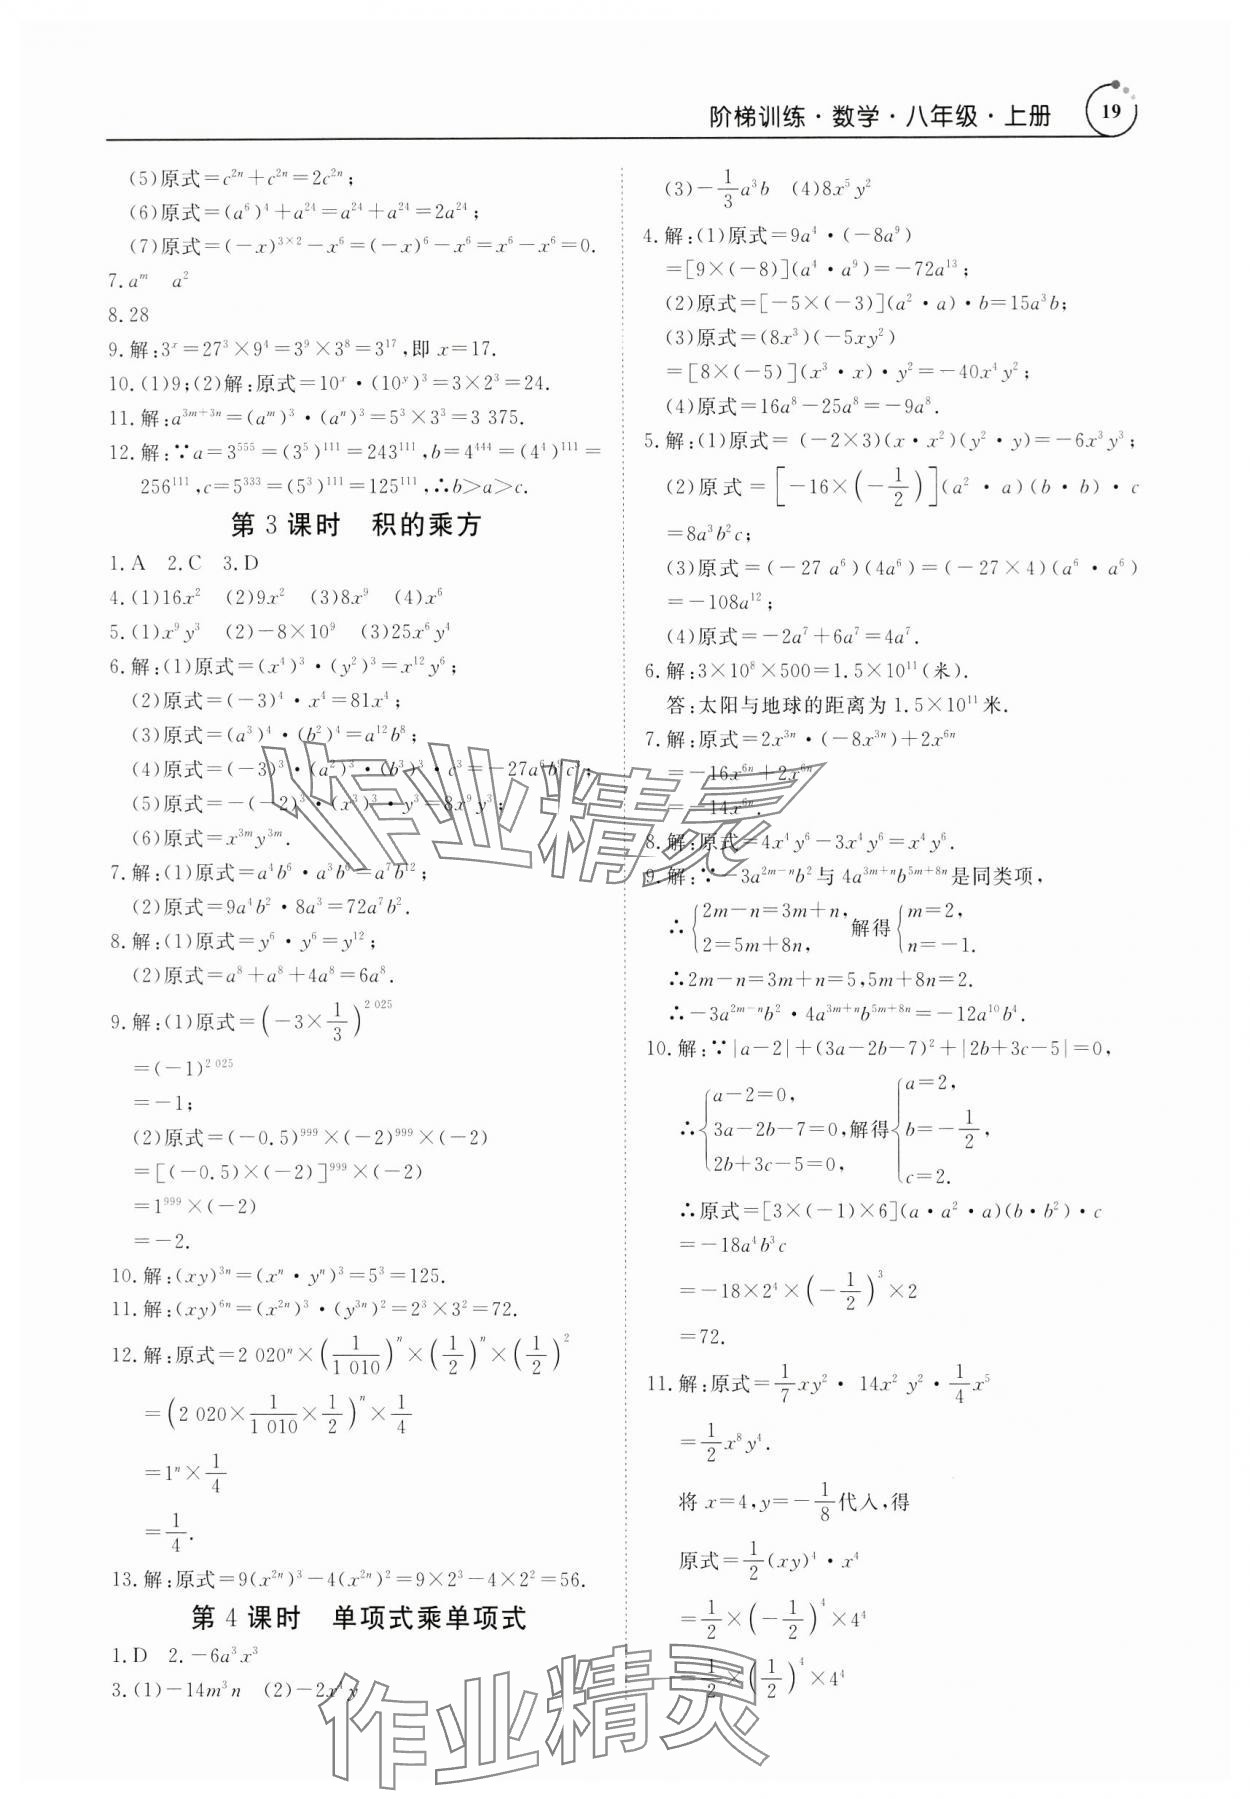 阶梯训练·数学·八年级·上册 19
(5)原式=c²ⁿ+c²ⁿ=2c²ⁿ;
(6)原式=(a⁶)⁴+a²⁴=a²⁴+a²⁴=2a²⁴;
(7)原式=(-x)³ˣ²-x⁶=(-x)⁶-x⁶=x⁶-x⁶=0.
7.aᵐ a²
8.28
9.解:3ˣ=27³×9⁴=3⁹×3⁸=3¹⁷,即 x=17.
10.(1)9;(2)解:原式=10ˣ·(10ʸ)³=3×2³=24.
11.解:a³ᵐ⁺³ⁿ=(aᵐ)³·(aⁿ)³=5³×3³=3 375.
12.解:∵a=3⁵⁵⁵=(3⁵)¹¹¹=243¹¹¹,b=4⁴⁴⁴=(4⁴)¹¹¹=
256¹¹¹,c=5³³³=(5³)¹¹¹=125¹¹¹,∴b>a>c.
第 3 课时 积的乘方
1.A 2.C 3.D
4.(1)16x² (2)9x² (3)8x⁹ (4)x⁶
5.(1)x⁹y³ (2)-8×10⁹ (3)25x⁶y⁴
6.解:(1)原式=(x⁴)³·(y²)³=x¹²y⁶;
(2)原式=(-3)⁴·x⁴=81x⁴;
(3)原式=(a³)⁴·(b²)⁴=a¹²b⁸;
(4)原式=(-3)³·(a²)³·(b³)³·c³=-27a⁶b⁹c³;
(5)原式=-(-2)³·(x³)³·y³=8x⁹y³;
(6)原式=x³ᵐy³ᵐ.
7.解:(1)原式=a⁴b⁶·a³b⁶=a⁷b¹²;
(2)原式=9a⁴b²·8a³=72a⁷b².
8.解:(1)原式=y⁶·y⁶=y¹²;
(2)原式=a⁸+a⁸+4a⁸=6a⁸.
9.解:(1)原式=(-3×1/3)² ⁰²⁵
=(-1)² ⁰²⁵
=-1;
(2)原式=(-0.5)⁹⁹⁹×(-2)⁹⁹⁹×(-2)
=[(-0.5)×(-2)]⁹⁹⁹×(-2)
=1⁹⁹⁹×(-2)
=-2.
10.解:(xy)³ⁿ=(xⁿ·yⁿ)³=5³=125.
11.解:(xy)⁶ⁿ=(x²ⁿ)³·(y³ⁿ)²=2³×3²=72.
12.解:原式=2 020ⁿ×(1/1 010)ⁿ×(1/2)ⁿ×(1/2)²
=(2 020×1/1 010×1/2)ⁿ×1/4
=1ⁿ×1/4
=1/4.
13.解:原式=9(x²ⁿ)³-4(x²ⁿ)²=9×2³-4×2²=56.
第 4 课时 单项式乘单项式
1.D 2.-6a³x³
3.(1)-14m³n (2)-2x⁴y
(3)-1/3a³b (4)8x⁵y²
4.解:(1)原式=9a⁴·(-8a⁹)
=[9×(-8)](a⁴·a⁹)=-72a¹³;
(2)原式=[-5×(-3)](a²·a)·b=15a³b;
(3)原式=(8x³)(-5xy²)
=[8×(-5)](x³·x)·y²=-40x⁴y²;
(4)原式=16a⁸-25a⁸=-9a⁸.
5.解:(1)原式= (-2×3)(x·x²)(y²·y)=-6x³y³;
(2)原式=[-16×(-1/2)](a²·a)(b·b)·c
=8a³b²c;
(3)原式=(-27 a⁶)(4a⁶)=(-27×4)(a⁶·a⁶)
=-108a¹²;
(4)原式=-2a⁷+6a⁷=4a⁷.
6.解:3×10⁸×500=1.5×10¹¹(米).
答:太阳与地球的距离为 1.5×10¹¹米.
7.解:原式=2x³ⁿ·(-8x³ⁿ)+2x⁶ⁿ
=-16x⁶ⁿ+2x⁶ⁿ
=-14x⁶ⁿ.
8.解:原式=4x⁴y⁶-3x⁴y⁶=x⁴y⁶.
9.解:∵-3a²ᵐ⁻ⁿb²与 4a³ᵐ⁺ⁿb⁵ᵐ⁺⁸ⁿ是同类项,
∴{2m-n=3m+n, 2=5m+8n, 解得{m=2, n=-1.
∴2m-n=3m+n=5,5m+8n=2.
∴-3a²ᵐ⁻ⁿb²·4a³ᵐ⁺ⁿb⁵ᵐ⁺⁸ⁿ=-12a¹⁰b⁴.
10.解:∵|a-2|+(3a-2b-7)²+|2b+3c-5|=0,
∴{a-2=0, 3a-2b-7=0, 2b+3c-5=0, 解得{a=2, b=-1/2, c=2.
∴原式=[3×(-1)×6](a·a²·a)(b·b²)·c
=-18a⁴b³c
=-18×2⁴×(-1/2)³×2
=72.
11.解:原式=1/7xy²· 14x² y²·1/4x⁵
=1/2x⁸y⁴.
将 x=4,y=-1/8代入,得
原式=1/2(xy)⁴·x⁴
=1/2×(-1/2)⁴×4⁴
=1/2×(1/2)⁴×4⁴
作业精灵
作业精灵